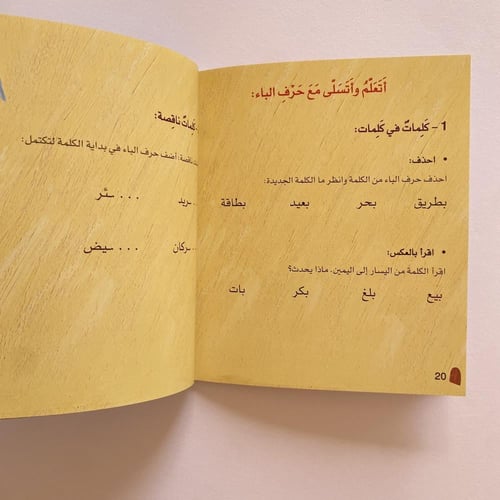 أَتَعَلَّمُ وأَتَسَلّى مَعَ حَرْفِ الباء:
1 – كَلِماتٌ في كَلِمات:
• احذف:
احذف حرف الباء من الكلمة وانظر ما الكلمة الجديدة:
بطريق بحر بعيد بطاقة
• اقرأ بالعكس:
اقرأ الكلمة من اليسار إلى اليمين. ماذا يحدث؟
بيع بلغ بكر بات
20
كَلِماتٌ ناقِصة:
أضف حرف الباء في بداية الكلمة لتكتمل:
ـريد . . . ـئر
ـركان . . . ـيض . . .